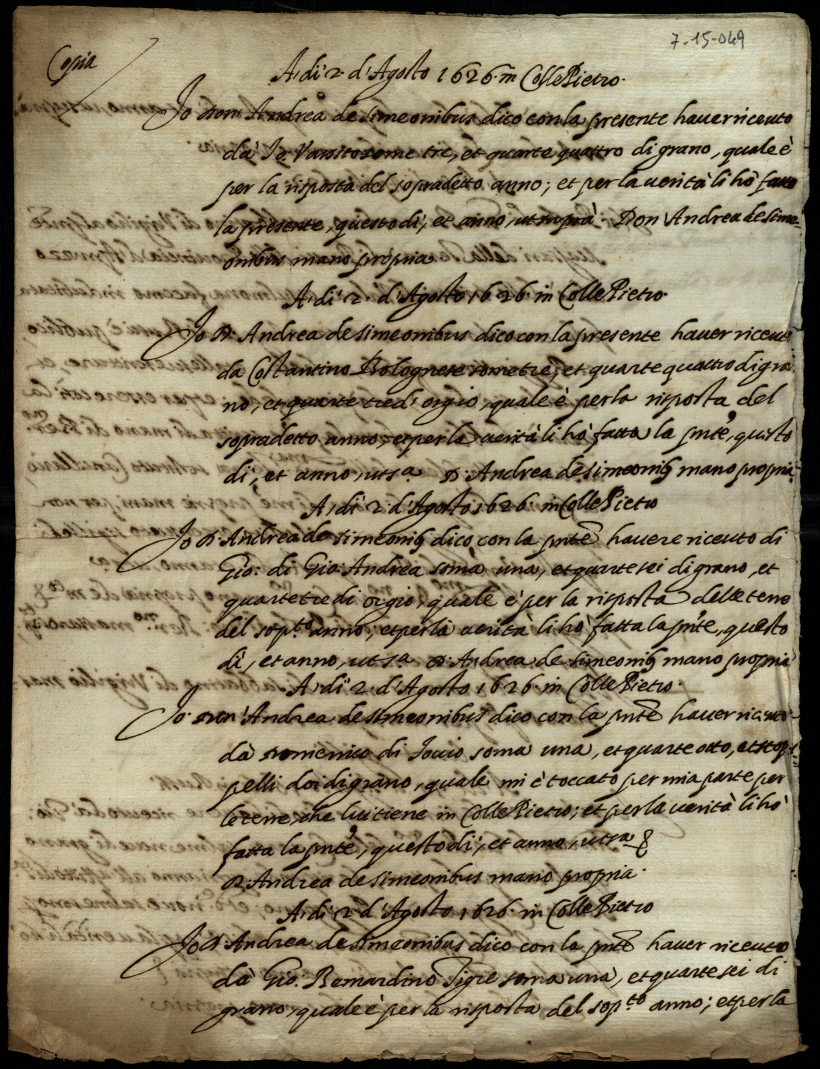 7-15-049
Copia
A dì 2 d'Agosto 1626 in Colle Pietro.
Io Don Andrea de simeonibus dico con la presente haver riceuto
da some tre, et quarte quattro di grano, quale è
per la risposta del sopradetto anno; et per la verità li hò fatto
la presente, questo dì, et anno, ut supra. Don Andrea de sime-
onibus mano propria
A dì 2 d'Agosto 1626 in Colle Pietro
Io D. Andrea de simeonibus dico con la presente haver riceut
da Costantino Bolognese some tre, et quarte quattro di gra-
no, et quarte tred' orgio, quale è per la risposta del
sopradetto anno, et per la verità li hò fatta la pnte, questo
dì, et anno, ut sa. D. Andrea de simeonib mano propria
A dì 2 d'Agosto 1626 in Colle Pietro
Io D. Andrea de simeonib dico con la pnte havere riceuto di
Gio: di Gio: Andrea soma una, et quarte sei di grano, et
quarte tre di orgio, quale è per la risposta delle terre
del sopto anno; et per la verità li hò fatta la pnte, questo
dì, et anno, ut sa D. Andrea de simeonib mano propria
A dì 2 d'Agosto 1626 in Colle Pietro.
Io Don Andrea de simeonibus dico con la pnte haver riceuto
da Domenico di Iouio soma una, et quarte otto, et stop
pelli doi di grano, quale mi è toccato per mia parte per
le terre, che lui tiene in Colle Pietro; et per la verità li hò
fatta la pnte, questo dì, et anno, ut sa
D. Andrea de simeonibus mano propria.
A dì 2 d'Agosto 1626 in Colle Pietro
Io D. Andrea de simeonibus dico con la pnte haver riceuto
da Gio. Bernardino Tigre soma una, et quarte sei di
grano, quale è per la risposta del sopto anno; et per la